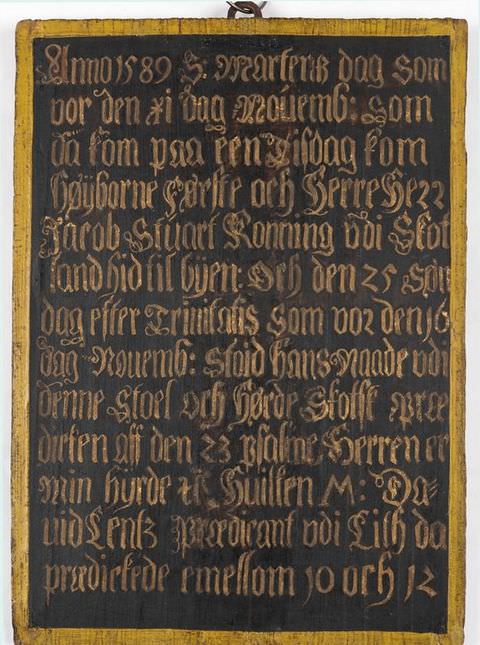 Anno 1589 S. Martens dag som
vor den xi dag Nouemb: som
da kom paa een Tisdag kom
Høyborne Første och Herre Herr
Jacob Stuart Konning vdi Skot
land hid til byen: Och den 25 Søn
dag efter Trinitatis som vor den 16
dag Nouemb: stoid hans Naade vdi
denne Stoel och hørde Skotsk præ
dicken aff den 23 psalme Herren er
min hyrde &c Huilken M: Da-
uid Lentz prædicant vdi Lith da
prædickede emellom 10 och 12